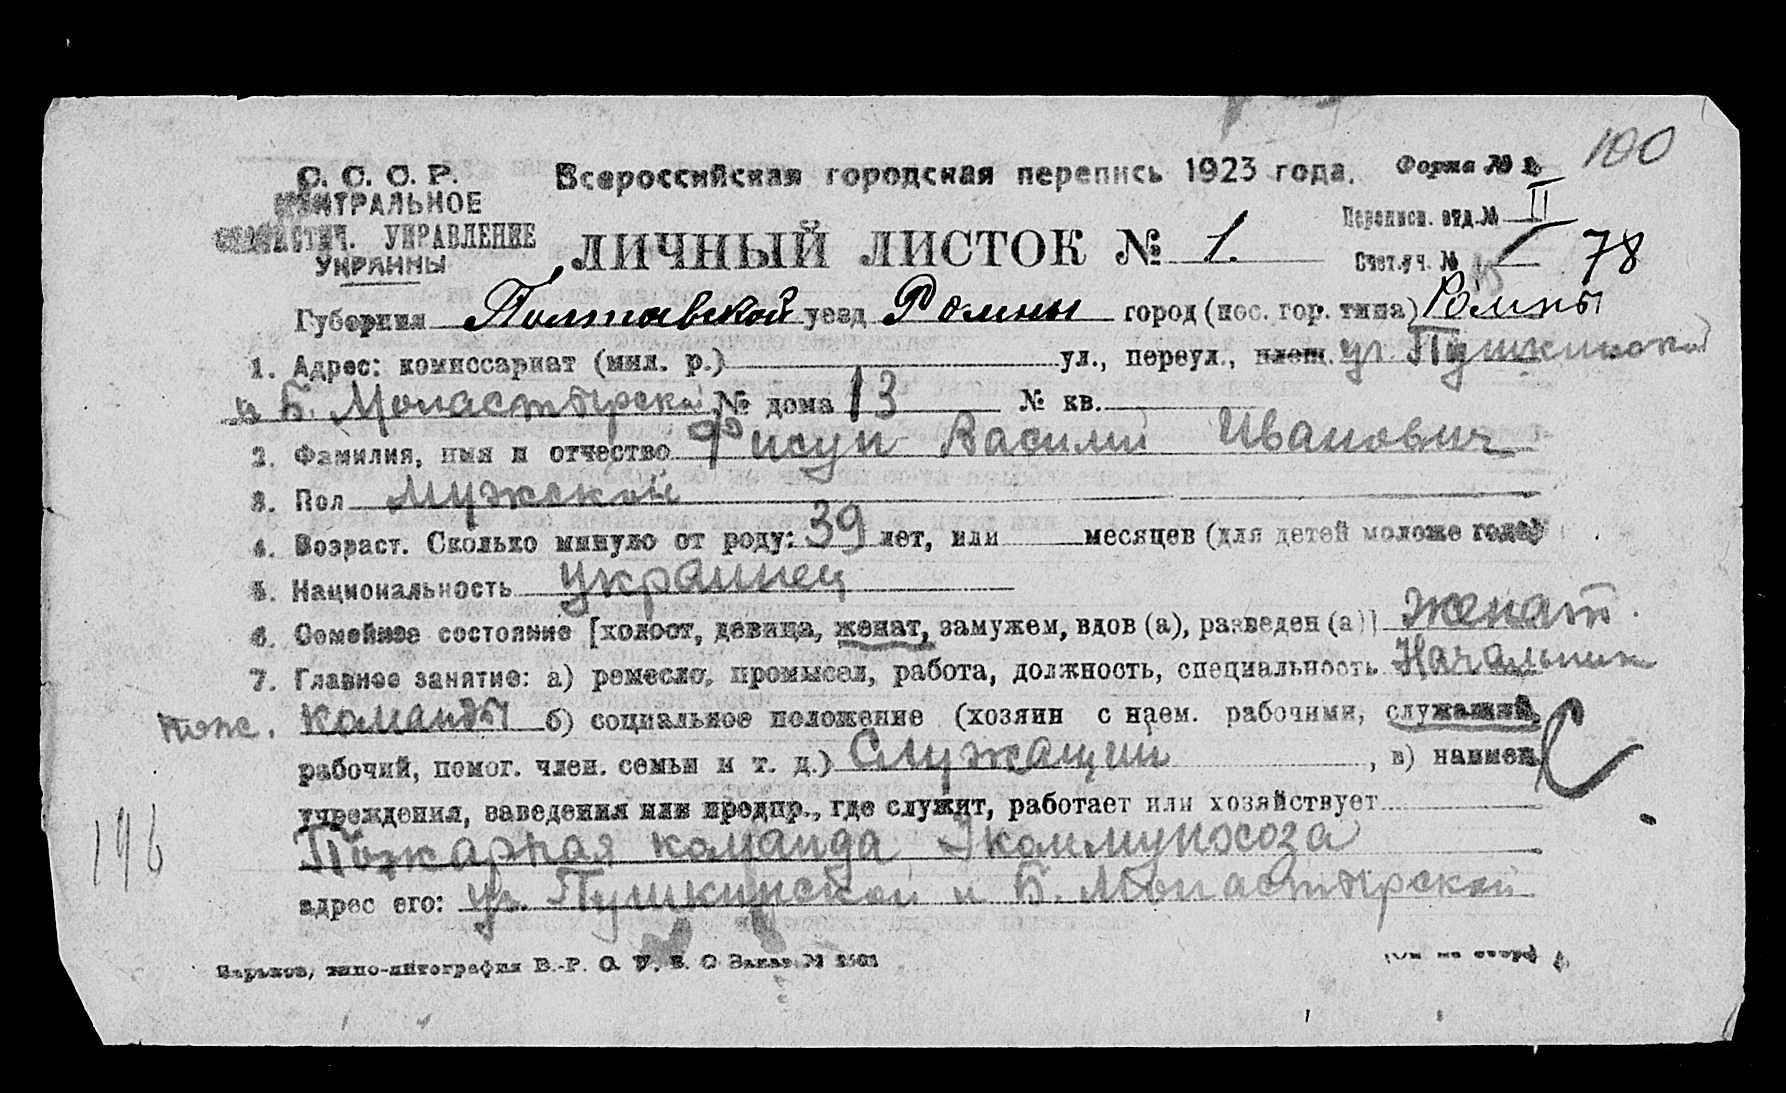 100
С. С. С. Р.
ЦЕНТРАЛЬНОЕ
СТАТИСТИЧ. УПРАВЛЕНИЕ
УКРАИНЫ
Всероссийская городская перепись 1923 года.
Форма №
Переписн. отд. № II
ЛИЧНЫЙ ЛИСТОК № 1.
Счет. уч. №
78
Губерния Полтавской уезд Ромны город (пос. гор. типа) Ромны
1. Адрес: комиссариат (мил. р.) ул., переул., площ. ул Пушкинской
и Б. Монастырской № дома 13 № кв.
2. Фамилия, имя и отчество Фисун Василий Иванович
3. Пол мужской
4. Возраст. Сколько минуло от роду: 39 лет, или месяцев (для детей моложе года)
5. Национальность украинец
6. Семейное состояние [холост, девица, женат, замужем, вдов (а), разведен (а)] женат.
7. Главное занятие: а) ремесло, промысел, работа, должность, специальность Начальник
пож. команды б) социальное положение (хозяин с наем. рабочими, служащий,
рабочий, помог. член. семьи и т. д.) Служащий, в) наимен.
учреждения, заведения или предпр., где служит, работает или хозяйствует
Пожарная команда Экоммунхоза
адрес его: ул. Пушкинской и Б. Монастырской
196
Харьков, типо-литография В.-Р. О. У. В. О Заказ №